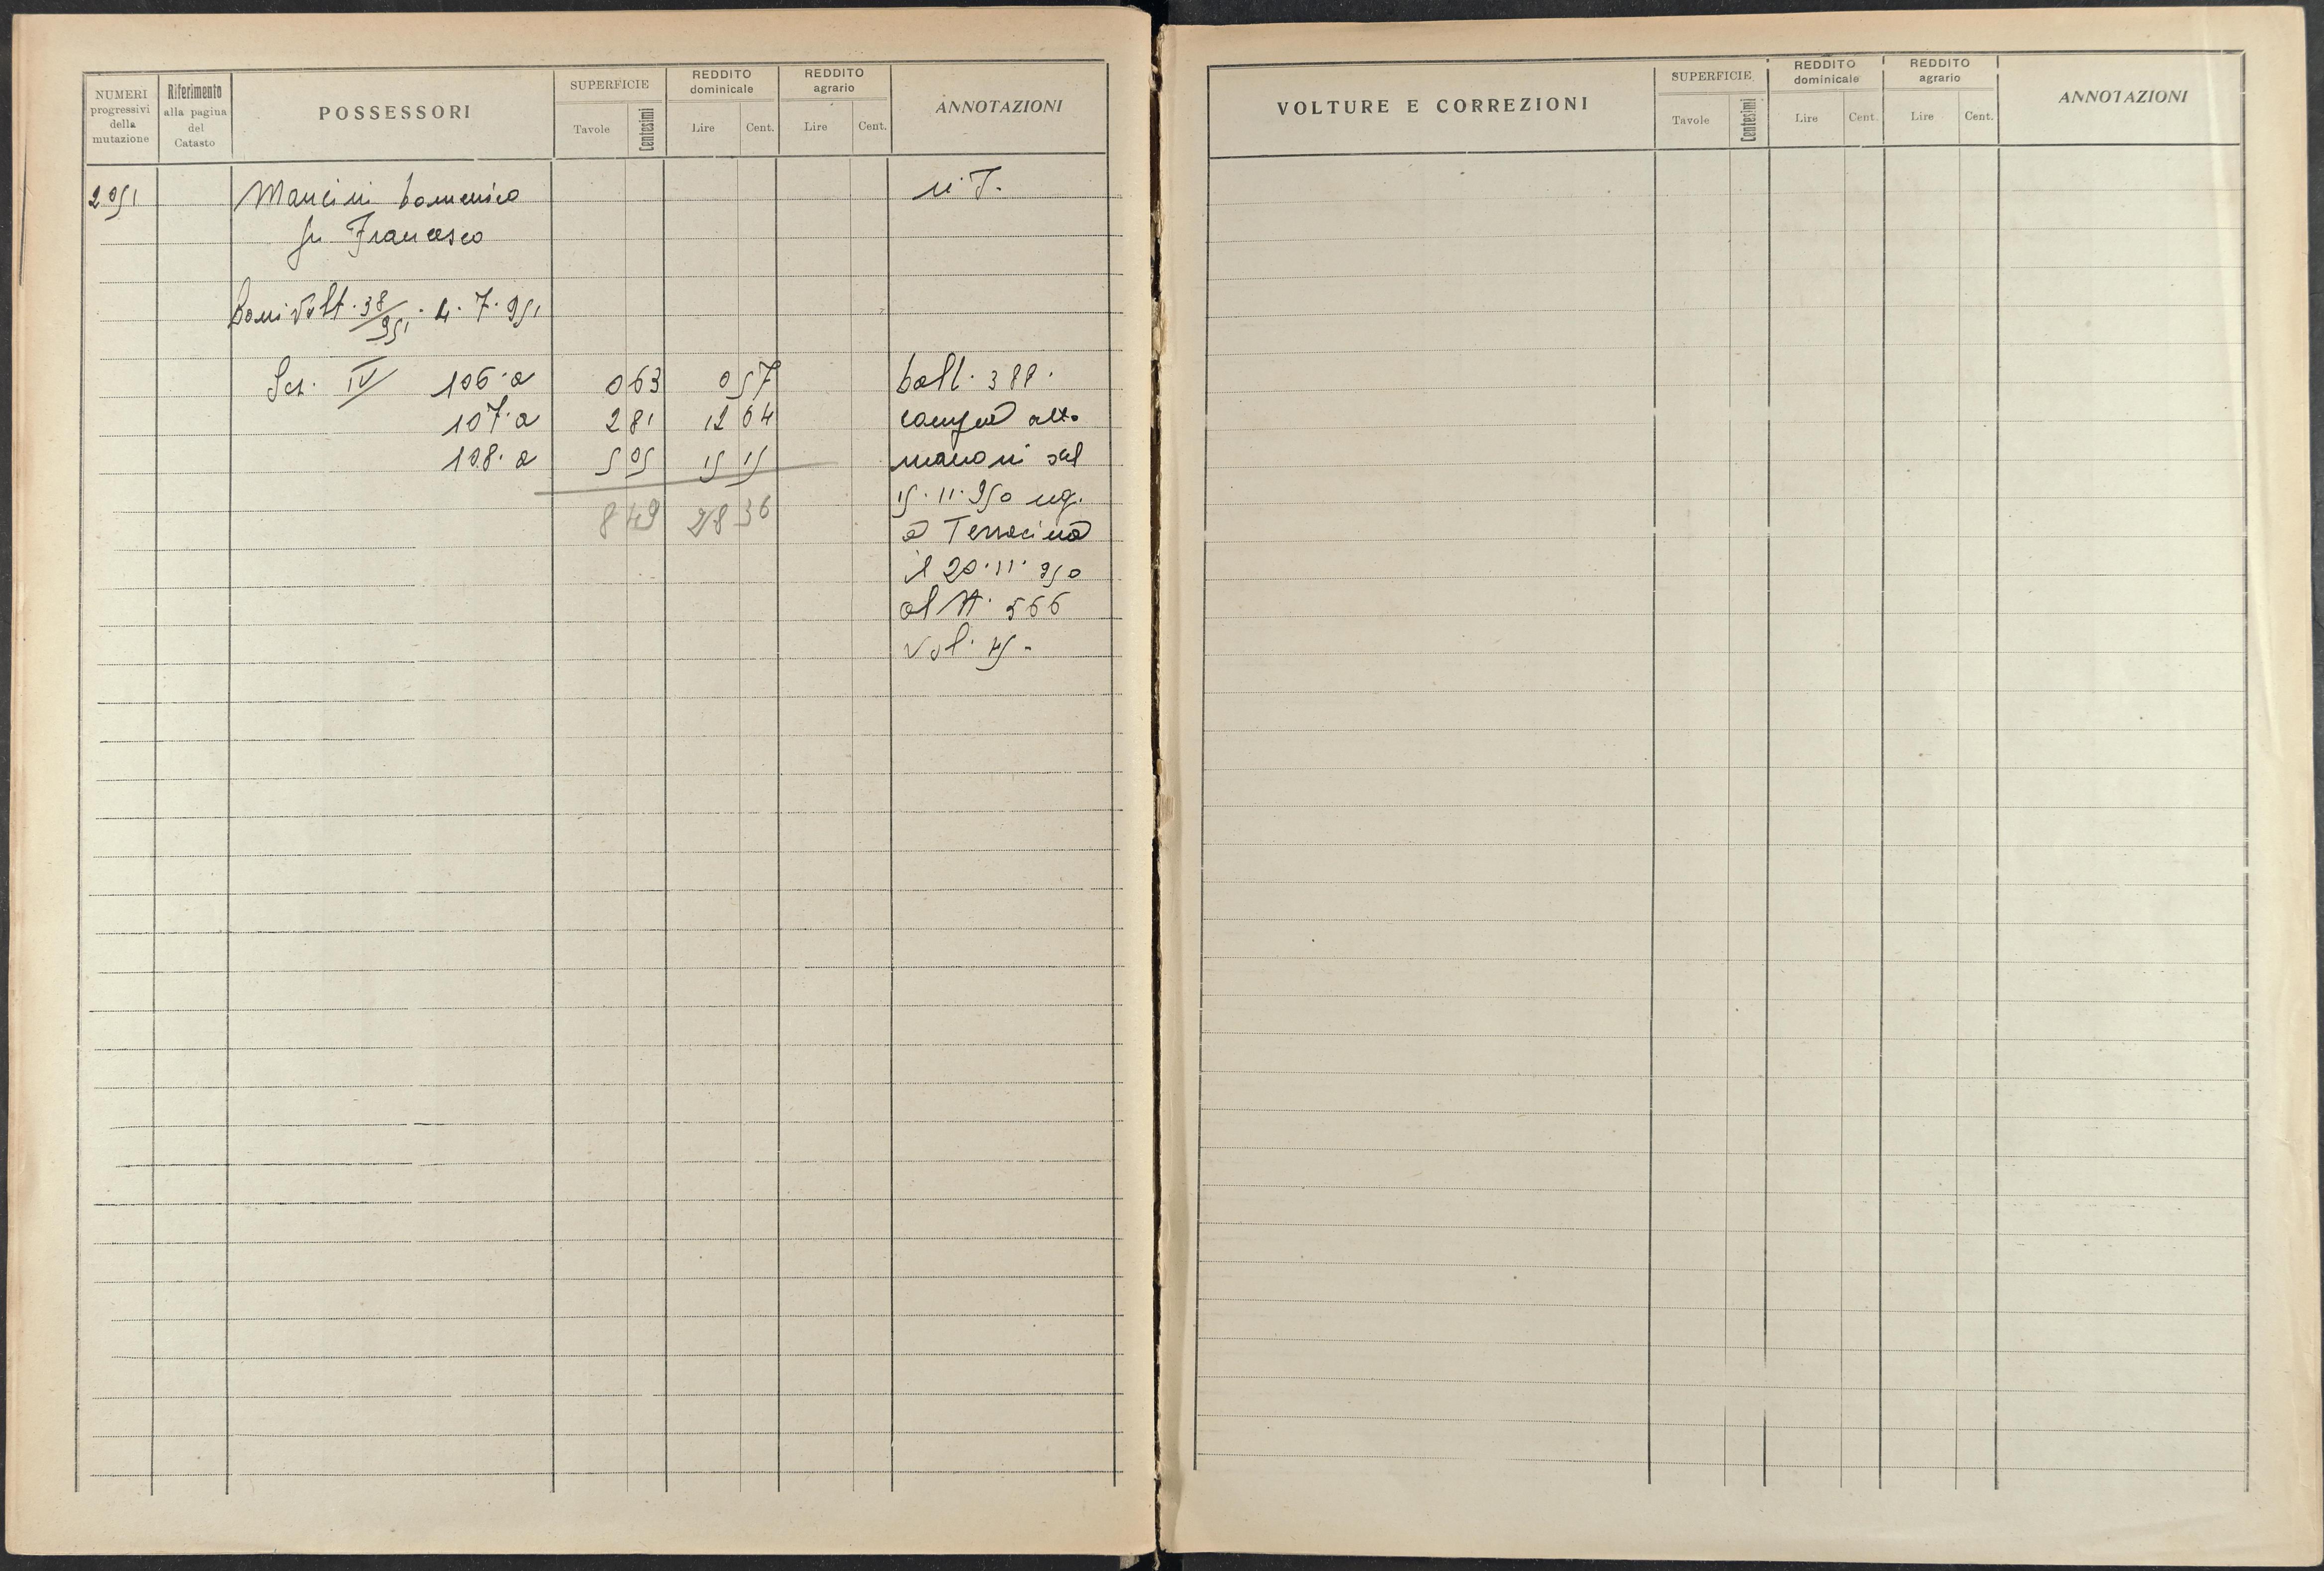 NUMERI progressivi della mutazione
Riferimento alla pagina del Catasto
POSSESSORI
SUPERFICIE
Tavole Centesimi
REDDITO dominicale
Lire Cent.
REDDITO agrario
Lire Cent.
ANNOTAZIONI
2051 Mancini Domenico
fu Francesco
Volt. 38/951. 4.7.951
Sez. IV 106.a 0 63 0 57 Boll. 388.
107.a 2 81 12 64
108.a 5 05 15 15 manoni del
8 49 28 36 15.11.950 reg.
a Terracina
il 20.11.950
al N. 566
Vol. 45.
VOLTURE E CORREZIONI
SUPERFICIE
Tavole Centesimi
REDDITO dominicale
Lire Cent.
REDDITO agrario
Lire Cent.
ANNOTAZIONI